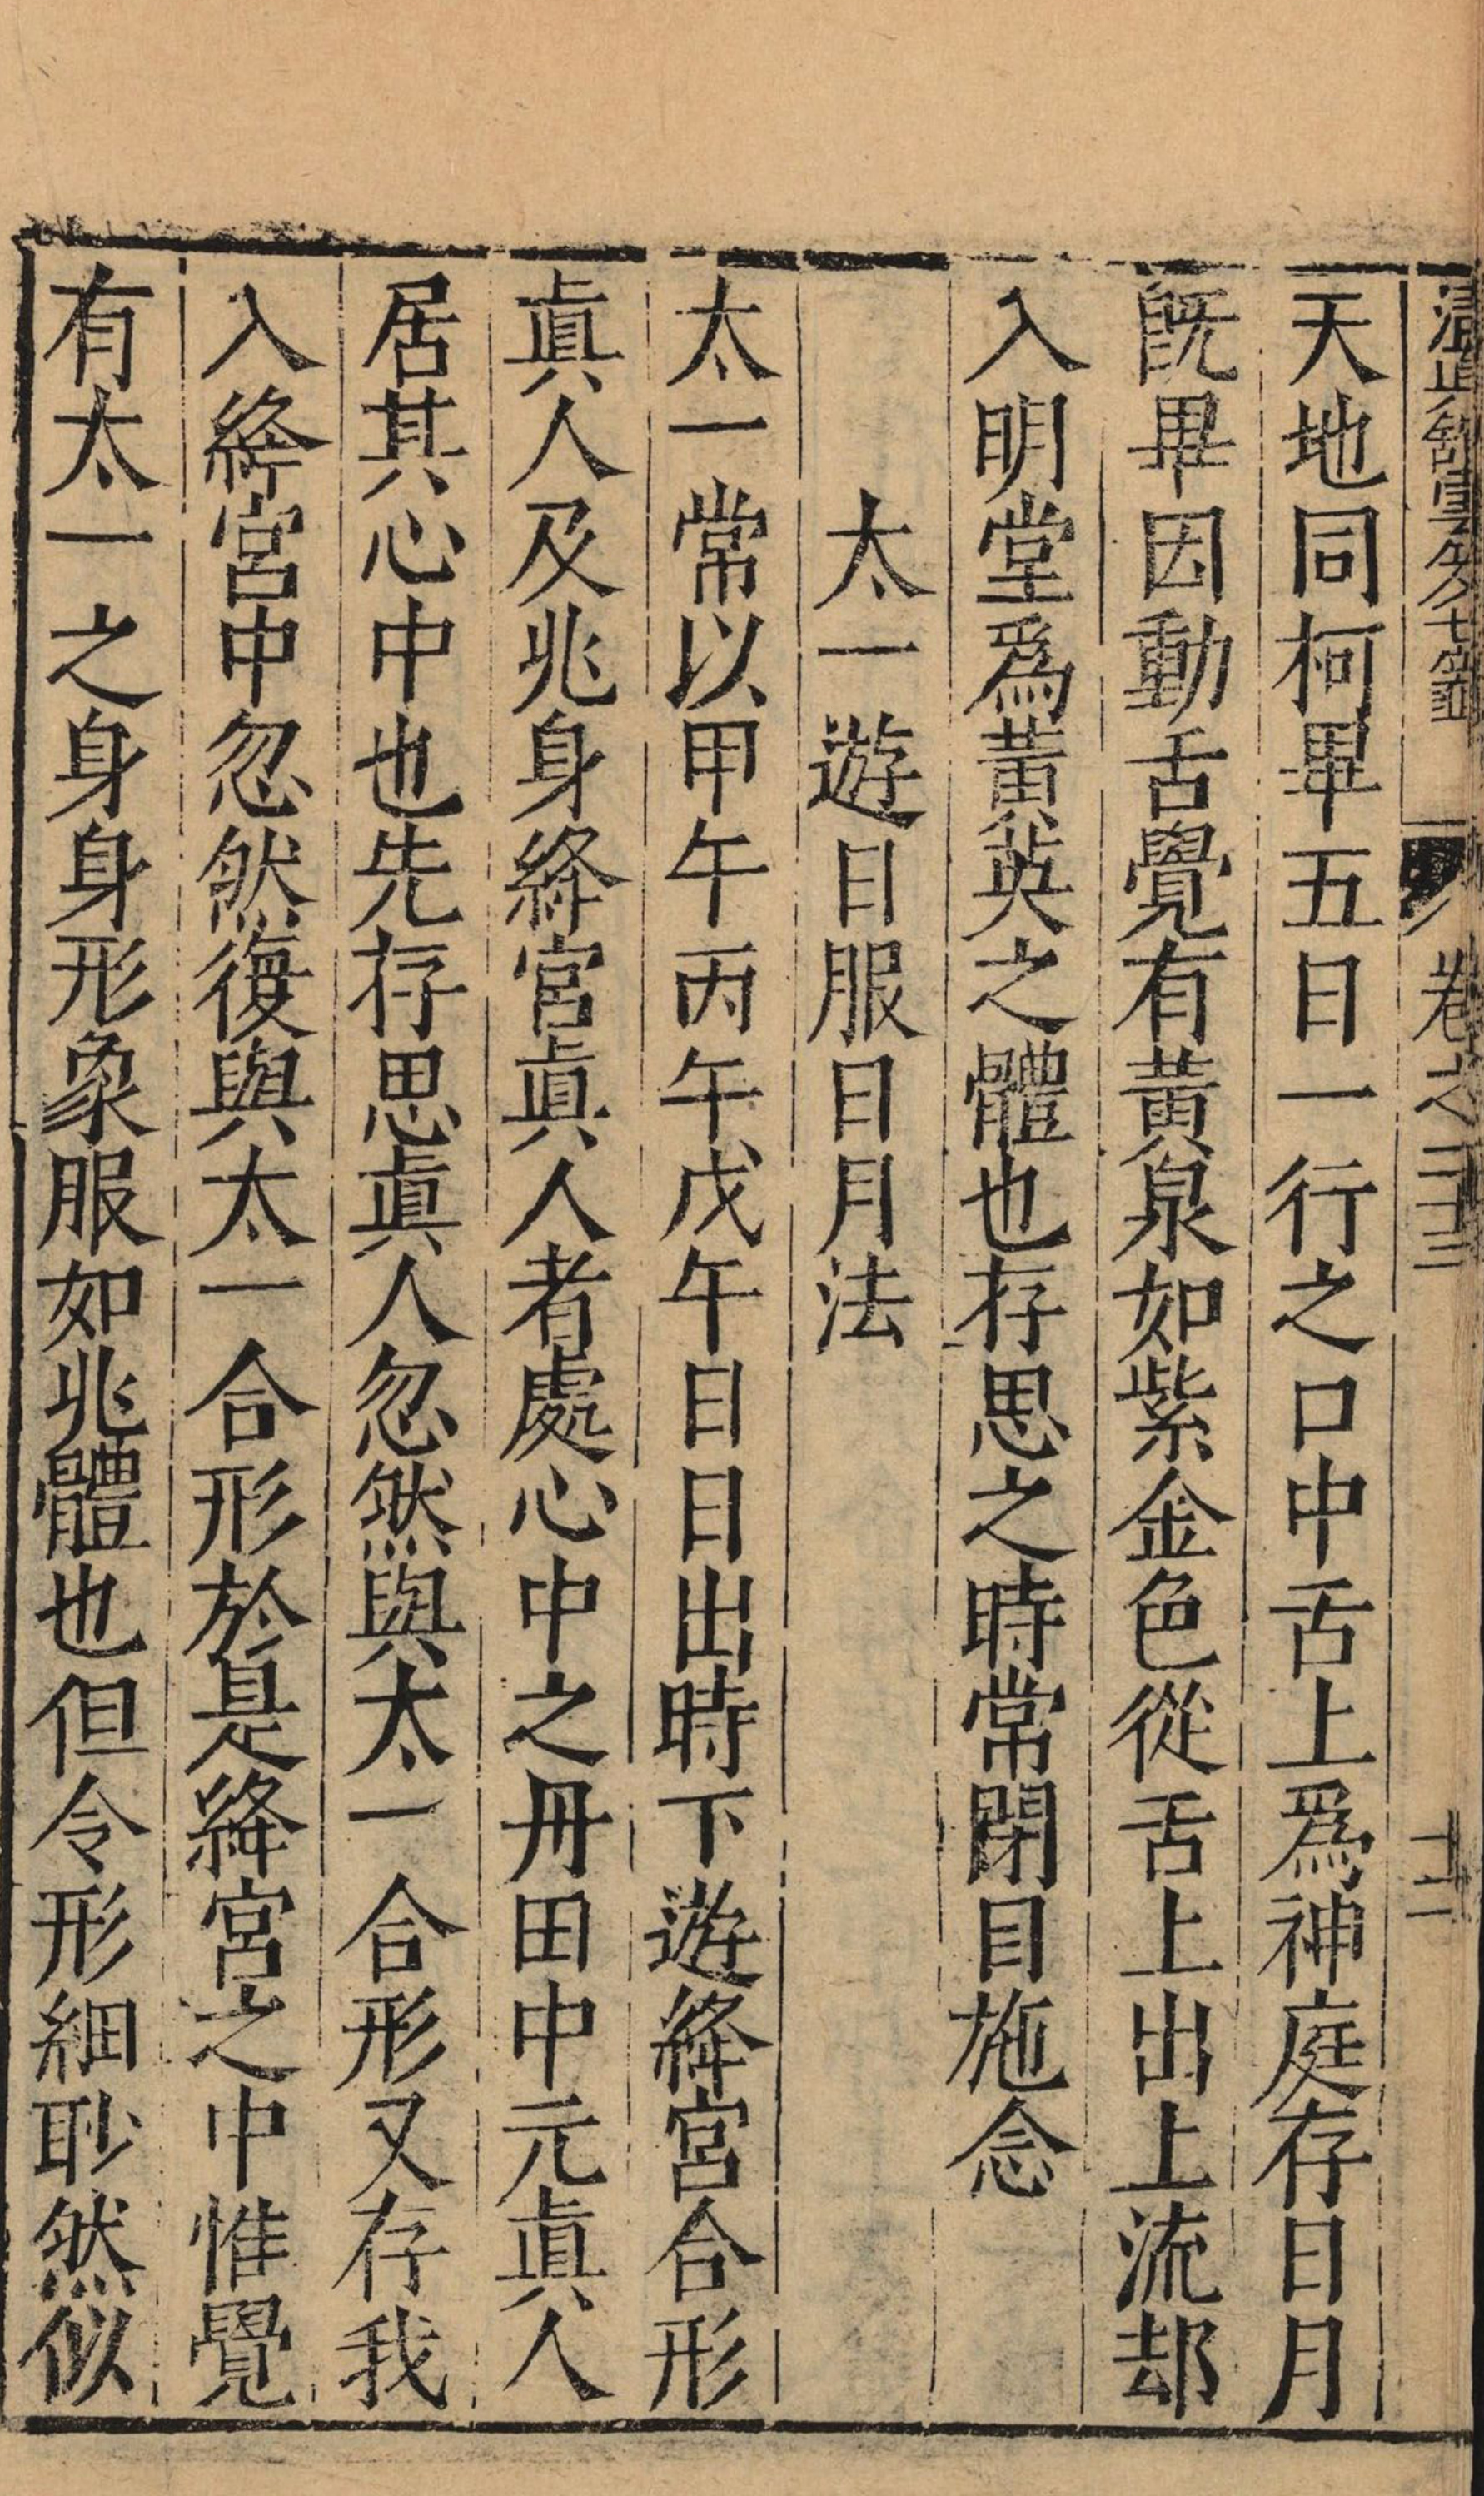 清眞館雲笈七籤 卷之二十三 十二
天地同柯畢五日一行之口中舌上爲神庭存日月
旣畢因動舌覺有黃泉如紫金色從舌上出上流却
入明堂爲黃英之體也存思之時常閉目施念
太一遊日服日月法
太一常以甲午丙午戊午日日出時下遊絳宮合形
眞人及兆身絳宮眞人者處心中之丹田中元眞人
居其心中也先存思眞人忽然與太一合形又存我
入絳宮中忽然復與太一合形於是絳宮之中惟覺
有太一之身身形象服如兆體也但令形細耿然似